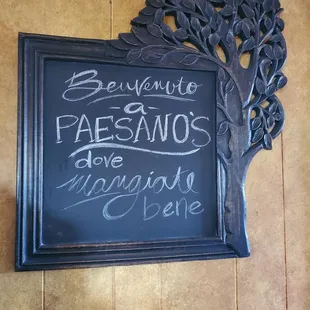 Benvenuto
-a-
PAESANO'S
dove
mangiate
bene